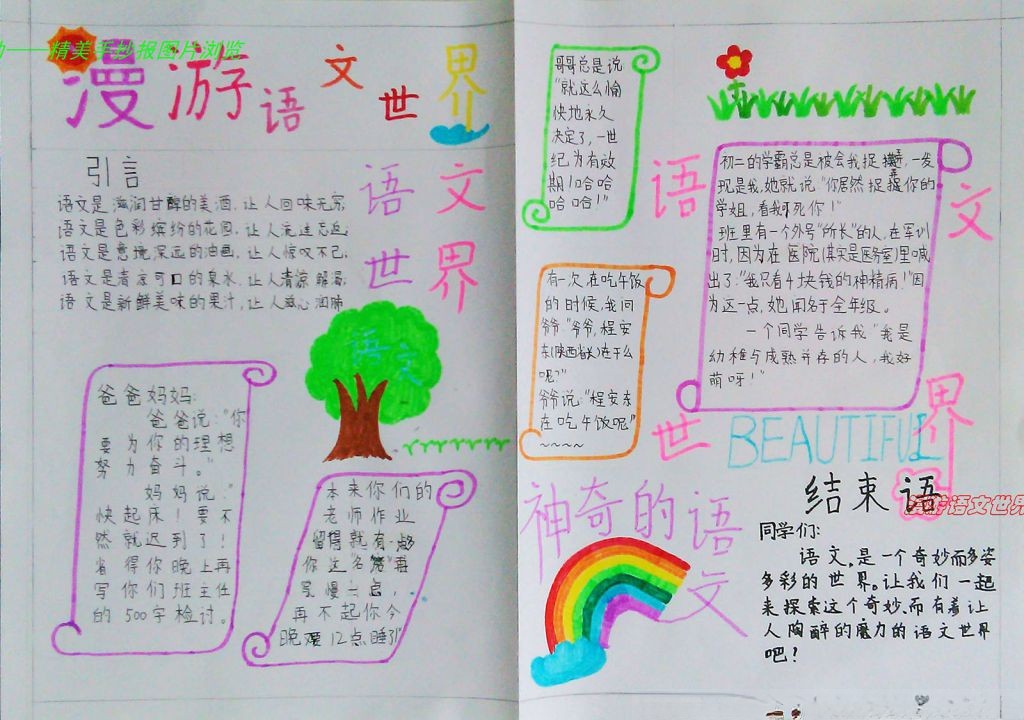 ——精美手抄报图片浏览
漫游语文世界
引言
语文是滋润甘醇的美酒，让人回味无穷，
语文是色彩缤纷的花园，让人流连忘返，
语文是意境深远的油画，让人惊叹不已，
语文是清凉可口的泉水，让人清凉解渴，
语文是新鲜美味的果汁，让人润肺
语文
世界
语文
爸爸妈妈：
爸爸说：“你
要为你的理想
努力奋斗。”
妈妈说：“
快起床！要不
然就迟到了！
省得你晚上再
写你们班主任
的500字检讨。
本来你们的
老师作业
留得就有点多
你这“名笔”再
写慢一点，
再不起你今
晚12点睡了！”
哥哥总是说
“就这么愉
快地永久
决定了，一世
纪为有效
期！哈哈
哈哈！”
语文
有一次在吃午饭
的时候，我问
爷爷：“爷爷，程安
东(陕西省长)在干么
呢？”
爷爷说：“程安东
在吃午饭呢。”
~~~~
初二的学霸总是被会我捉，一发
现是我，她就说“你居然捉你的
学姐，看我不死你！”
班里有一个外号“所长”的人，在军训
时，因为在医院(其实是医务室)里喊
出了：“我只看4块钱的神精病！”因
为这一点，她闻名于全年级。
一个同学告诉我“我是
幼稚与成熟并存的人，我好
萌呀！”
世界
BEAUTIFUL
神奇的语文
结束语
语文世界
同学们：
语文，是一个奇妙而多姿
多彩的世界。让我们一起
来探索这个奇妙、而有着让
人陶醉的魔力的语文世界
吧？